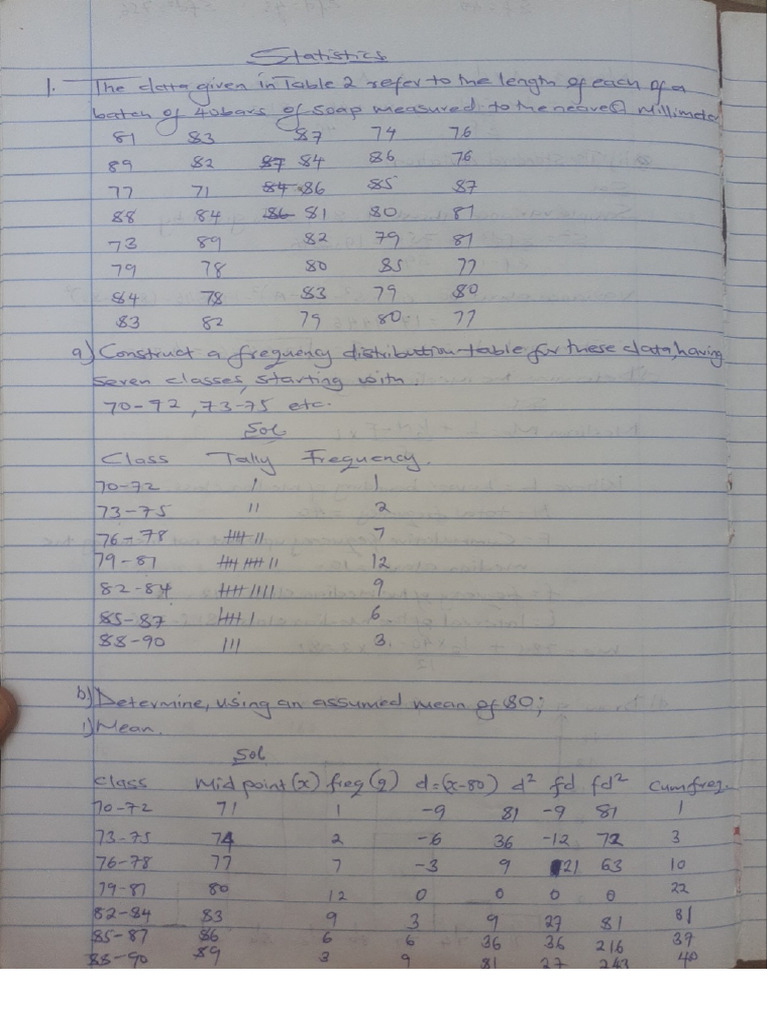 Statistics
1. The data given in Table 2 refer to the length of each of a
batch of 40 bars of soap measured to the nearest millimeter
81 83 87 74 76
89 82 87 84 86 76
77 71 84 86 85 87
88 84 86 81 80 81
73 89 82 79 81
79 78 80 85 77
84 78 83 79 80
83 82 79 80 77
a) Construct a frequency distribution table for these data, having
seven classes, starting with
70-92, 73-75 etc.
Sol
Class Tally Frequency.
70-72 I 1
73-75 II 2
76-78 IIII II 7
79-81 IIII IIII II 12
82-84 IIII IIII 9
85-87 IIII I 6
88-90 III 3
b) Determine, using an assumed mean of 80;
i) Mean.
Sol
Class Midpoint (x) freq (f) d=(x-80) d² fd fd² Cumfreq.
70-72 71 1 -9 81 -9 81 1
73-75 74 2 -6 36 -12 72 3
76-78 77 7 -3 9 21 63 10
79-81 80 12 0 0 0 0 22
82-84 83 9 3 9 27 81 81
85-87 86 6 6 36 36 216 37
88-90 89 3 9 81 27 243 40